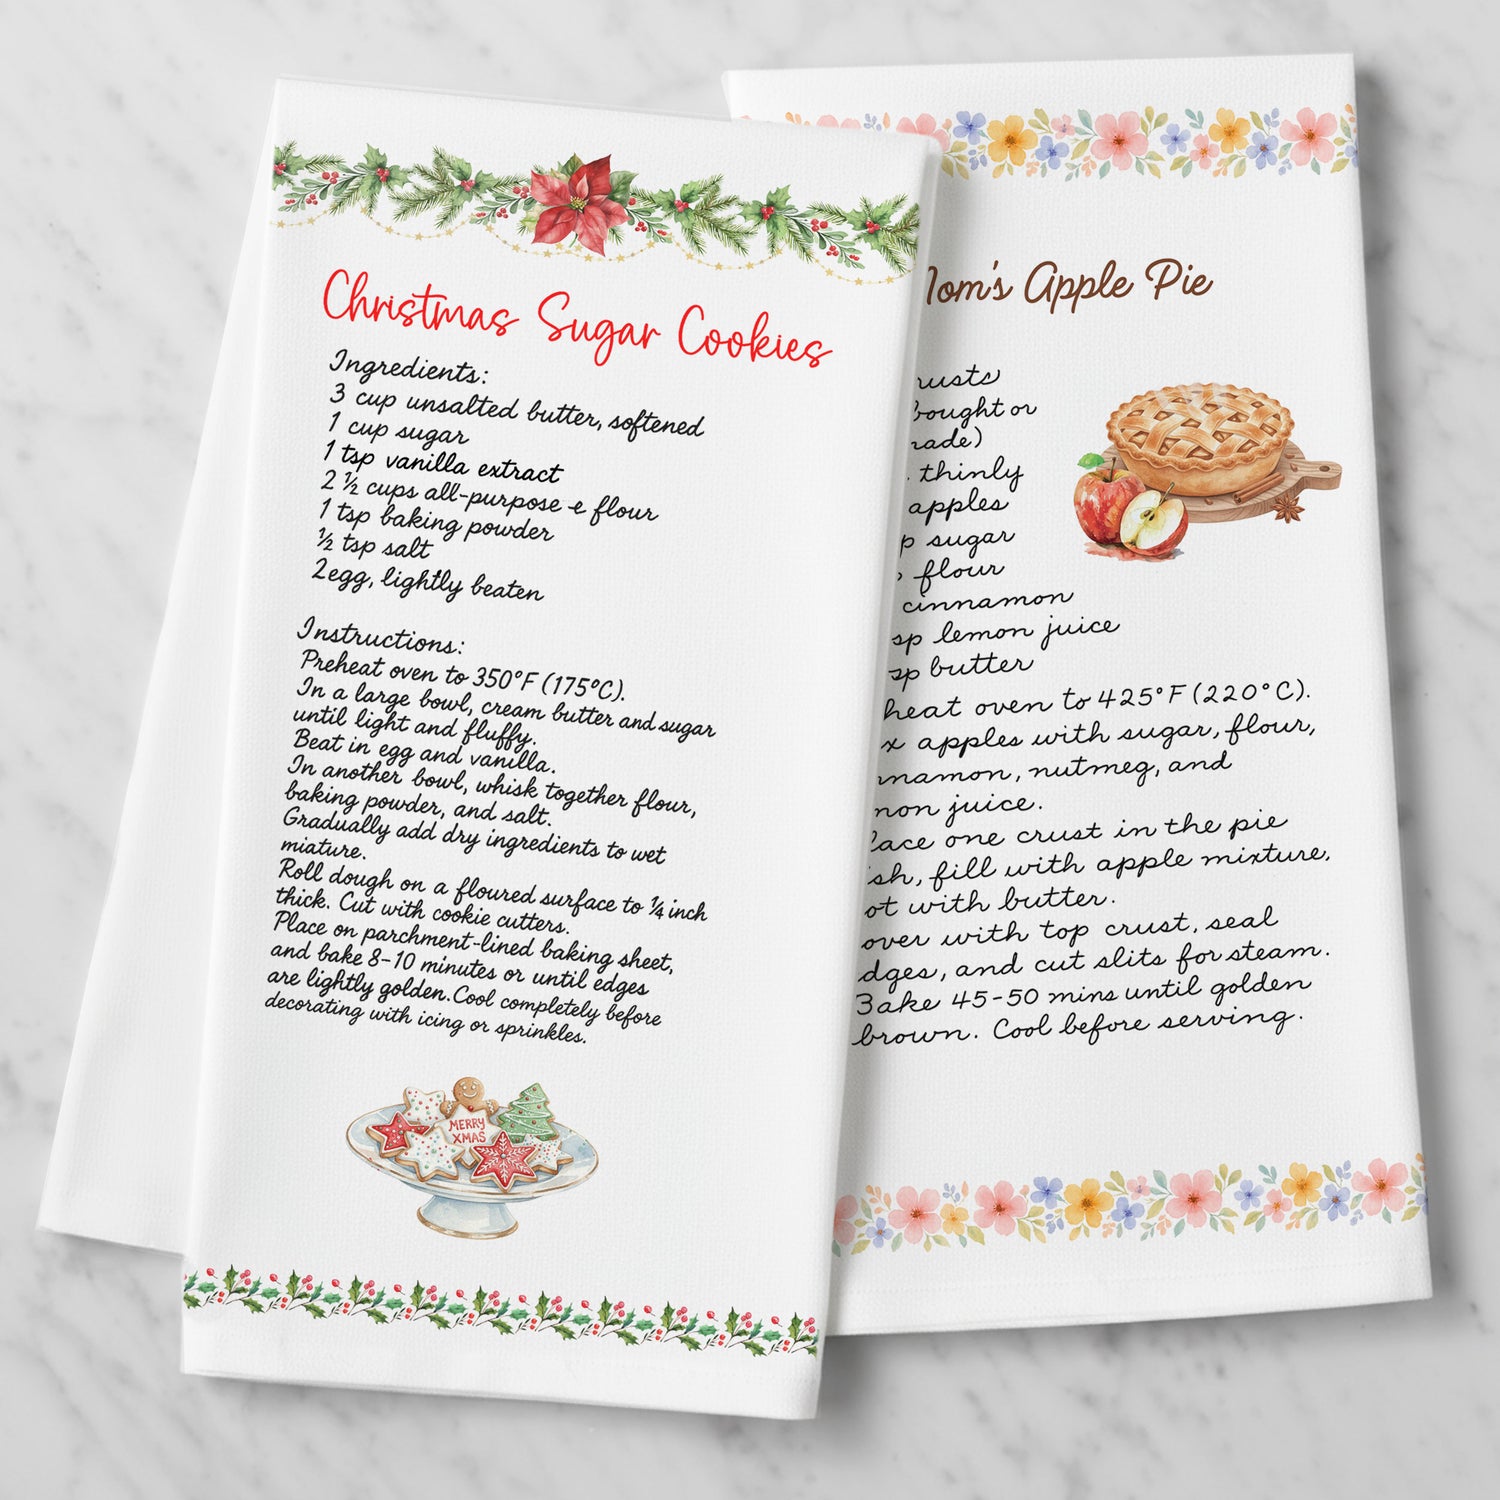 Christmas Sugar Cookies
Ingredients:
3 cup unsalted butter, softened
1 cup sugar
1 tsp vanilla extract
2 ½ cups all-purpose e flour
1 tsp baking powder
½ tsp salt
2egg, lightly beaten
Instructions:
Preheat oven to 350°F (175°C).
In a large bowl, cream butter and sugar
until light and fluffy.
Beat in egg and vanilla.
In another bowl, whisk together flour,
baking powder, and salt.
Gradually add dry ingredients to wet
miature.
Roll dough on a floured surface to ¼ inch
thick. Cut with cookie cutters.
Place on parchment-lined baking sheet,
and bake 8-10 minutes or until edges
are lightly golden. Cool completely before
decorating with icing or sprinkles.
MERRY
XMAS
Mom's Apple Pie
rusts
bought or
made)
. thinly
apples
p sugar
flour
cinnamon
sp lemon juice
sp butter
heat oven to 425°F (220°C).
x apples with sugar, flour,
nnamon, nutmeg, and
mon juice.
lace one crust in the pie
ish, fill with apple mixture,
ot with butter.
over with top crust, seal
dges, and cut slits for steam.
Bake 45-50 mins until golden
brown. Cool before serving.